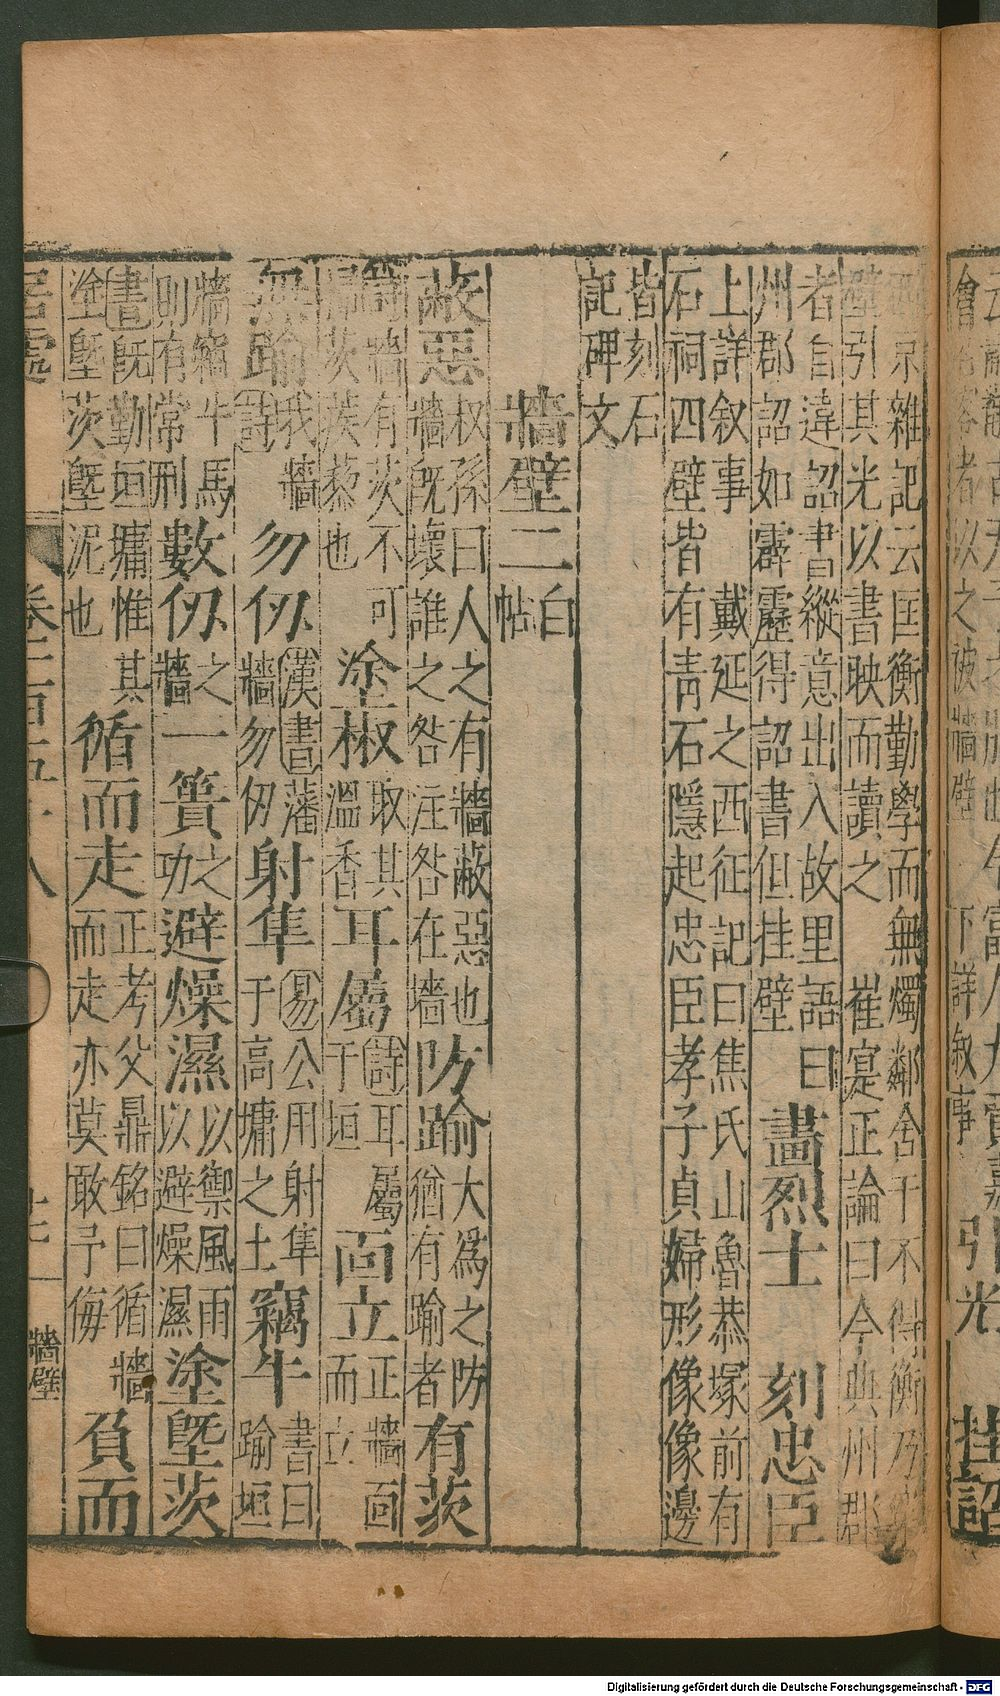 西京雜記云匡衡勤學而無燭鄰舍于不得衡乃穿
壁引其光以書映而讀之 崔寔正論曰今典州郡
者自違詔書縱意出入故里語曰
州郡詔如霹靂得詔書但挂壁
畫烈士 刻忠臣
上詳叙事 戴延之西征記曰焦氏山魯恭塚前有
石祠四壁皆有青石隱起忠臣孝子貞婦形像像邊
皆刻石
記碑文
牆壁二白帖
蔽惡 权孫曰人之有牆蔽惡也
牆旣壞誰之咎注咎在墻
防踰 大爲之防
猶有踰者
有茨
詩牆有茨不可
埽茨蒺藜也
塗椒 取其
溫香
耳屬 詩耳屬
于垣
面立 正牆面
而立
無踰 我牆
詩
勿仞 漢書藩
牆勿仞
射隼 易公用射隼
于高墉之土
竊牛 書曰
踰垣
牆竊牛馬
則有常刑
數仞 之
牆
一簣 之
功
避燥濕 以御風雨
以避燥濕
塗塈茨
書旣勤垣墉惟其
塗塈茨塈泥也
循而走 正考父鼎銘曰循牆
而走亦莫敢予侮
負而
居處
卷二百五十八
十二
牆壁
引光
挂詔
Digitalisierung gefördert durch die Deutsche Forschungsgemeinschaft - DFG